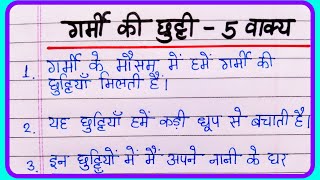 गर्मी की छुट्टी - 5 वाक्य
1. गर्मी के मौसम में हमें गर्मी की
छुट्टियाँ मिलती हैं।
2. यह छुट्टियाँ हमें कड़ी धूप से बचाती है।
3. इन छुट्टियों में मैं अपने नानी के घर